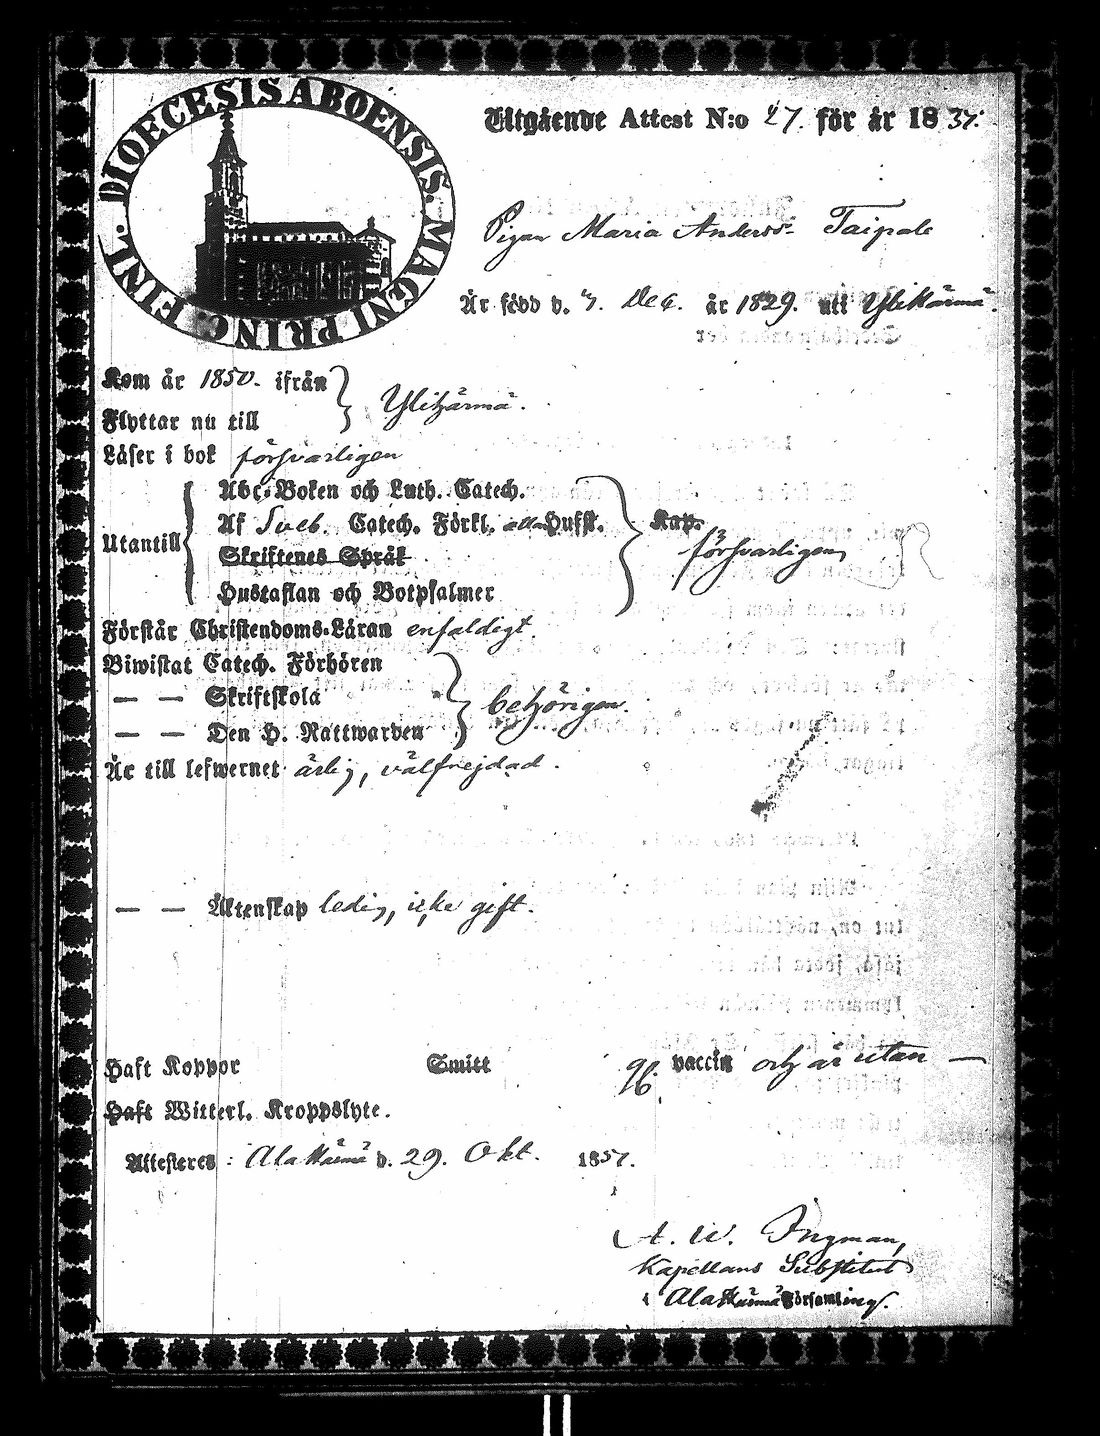 DIOECESIS ABOENSIS. MAGNI PRINC. FINL.
Utgående Attest N:o 27. för år 1857.
Pigan Maria Anders- Taipale
Är född d. 7. Dec. år 1829. uti Ylihärmä.
Kom år 1850. ifrån
Flyttar nu till
Ylihärmä.
Läser i bok försvarligen
Utantill
Abc-Boken och Luth. Catech.
Af Sveb. Catech. Förkl. Hufst. Kap.
Skriftenes Språk
Hustaflan och Botpsalmer
försvarligen
Förstår Christendoms-Läran enfaldigt
Biwistat Catech. Förhören
— — Skriftskola
— — Den H. Nattwarden
behörigen.
Är till lefwernet ärlig, välfrejdad.
— — Äktenskap ledig, icke gift.
Haft Koppor Smitt gf. vaccin och är utan —
Haft Witterl. Kroppslyte.
Attesteres: Alahärmä d. 29. Okt. 1857.
A. W. Ingman,
Kapellans Substitut
i Alahärmä Församling.